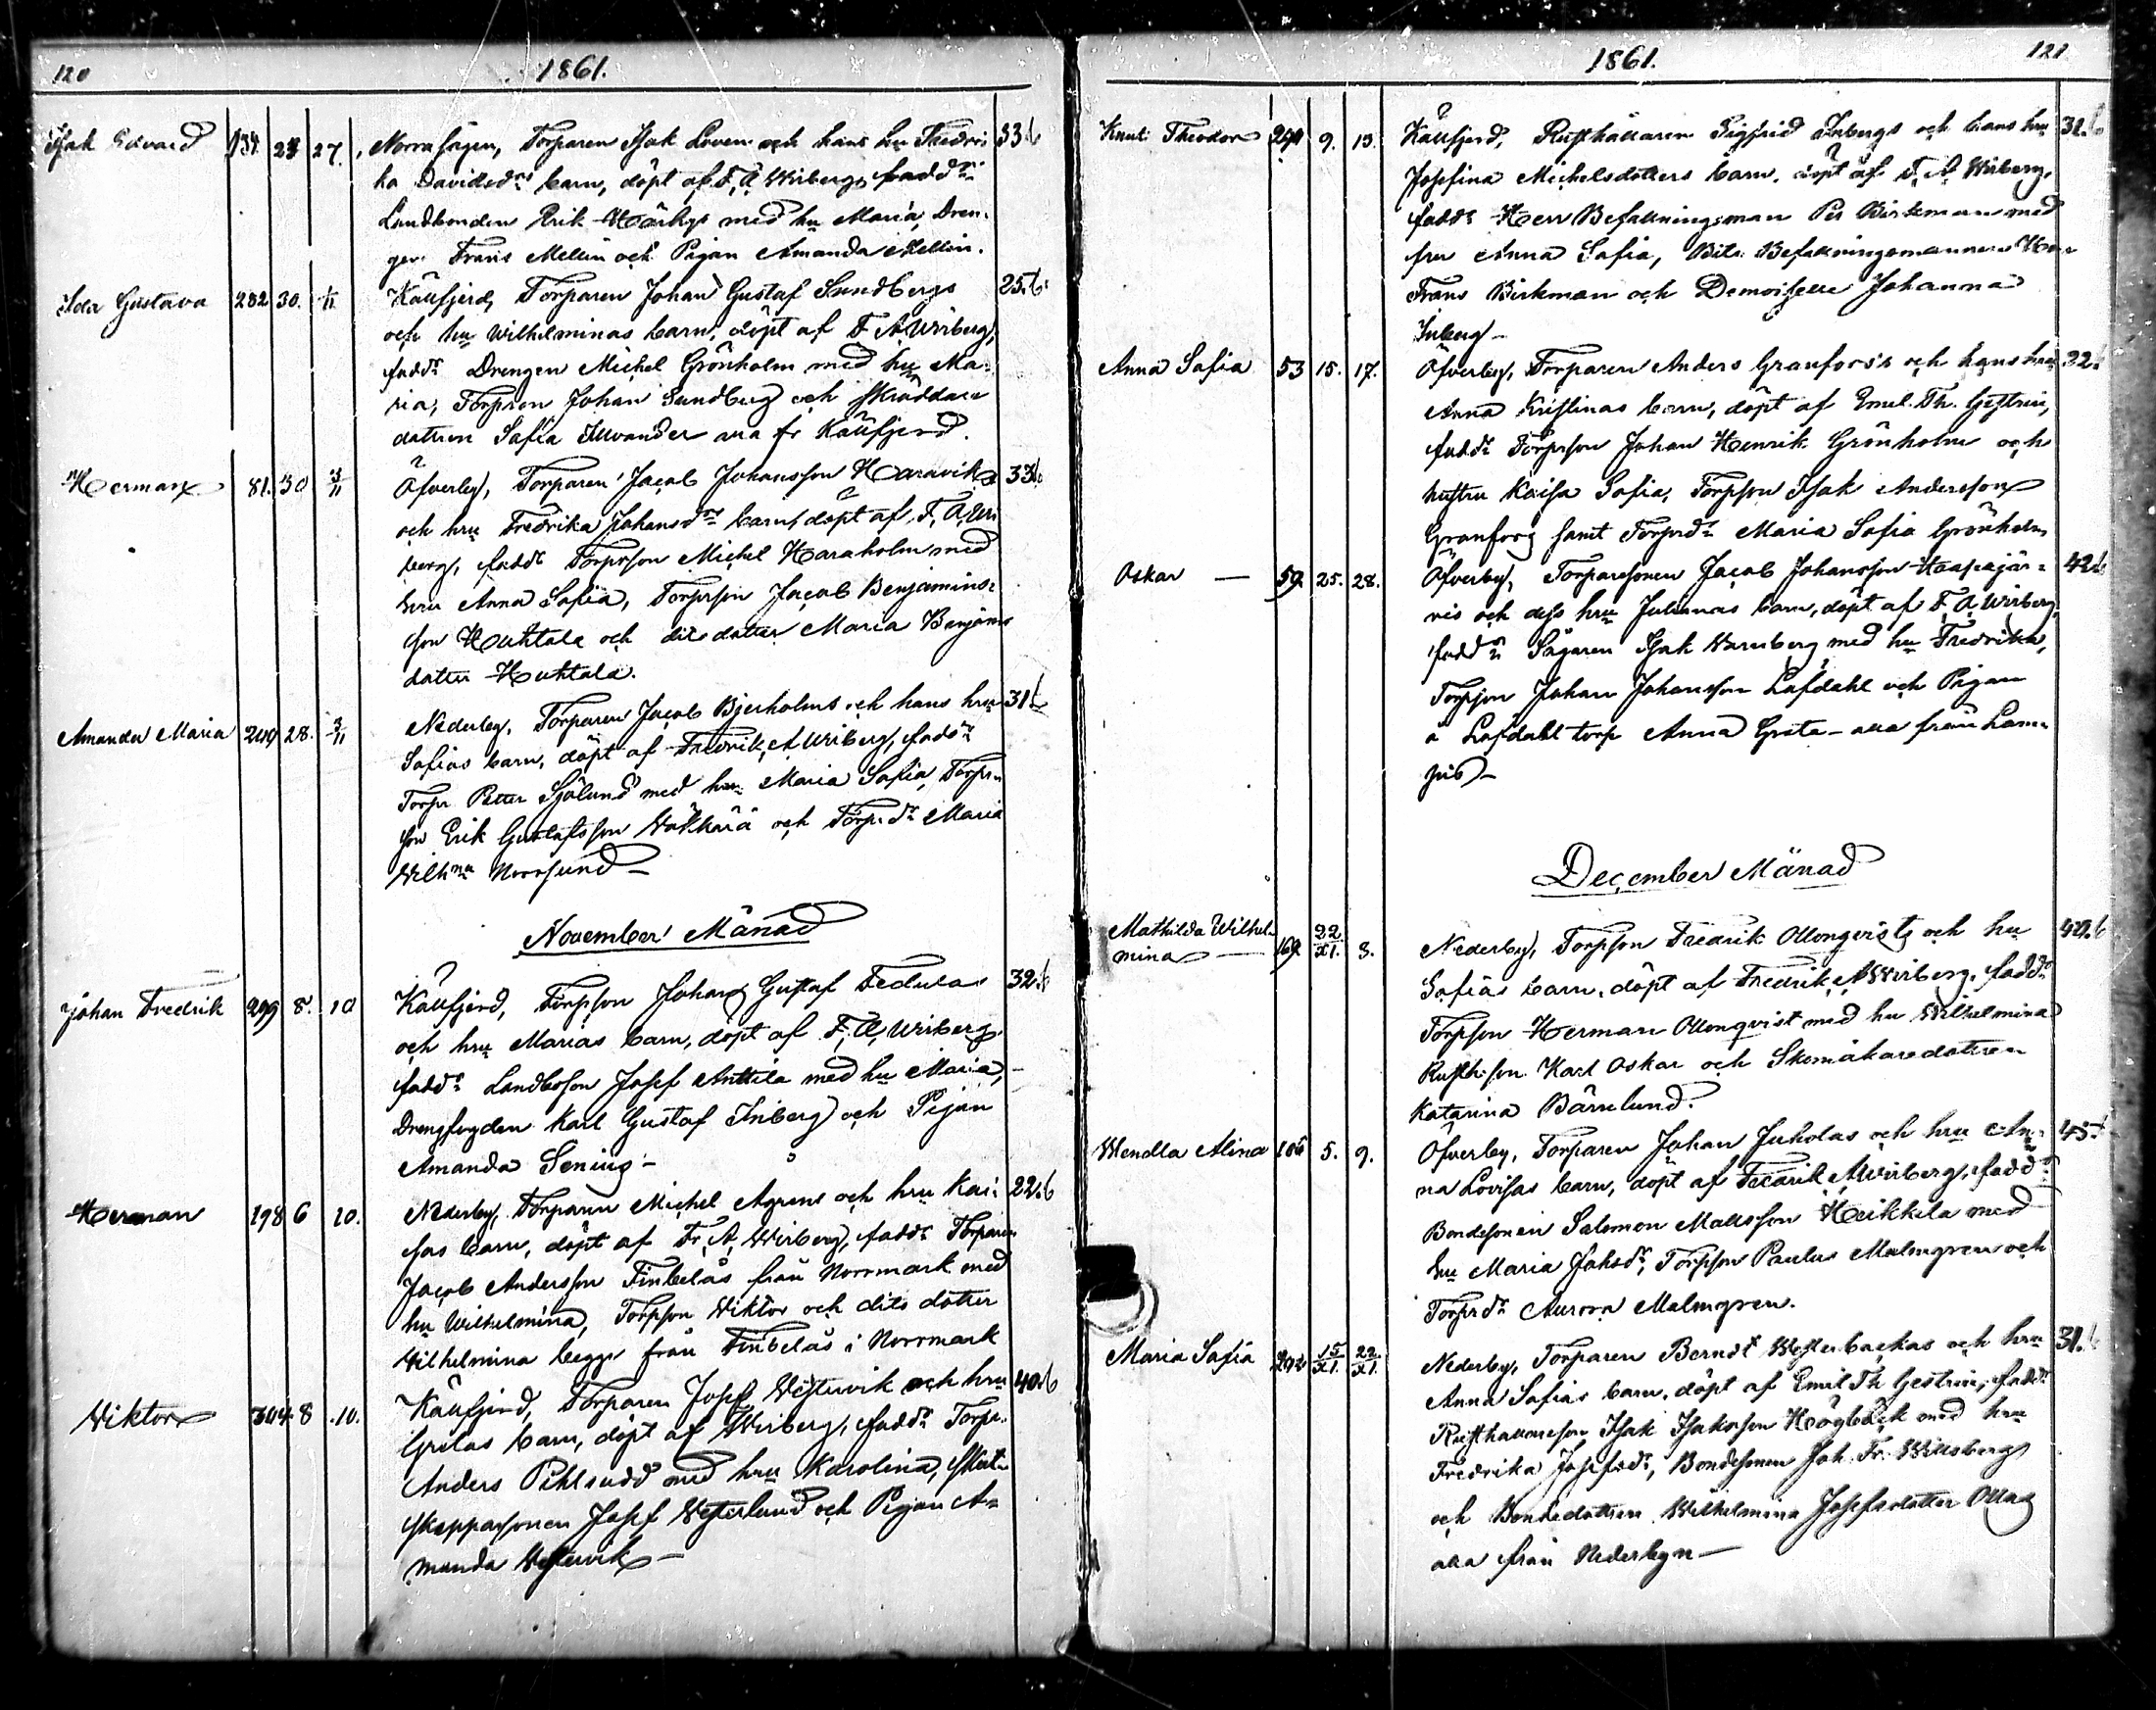 120
1861.
Isak Edvard 134 24 27. Norra sågen, Torparen Isak Loven och hans hu Fredri 33.6
ka Davidsdrs barn, döpt af F. A. Wiberg, faddr
Landbonden Erik med hu Maria, Dren-
gen Frans Mellin och Pigan Amanda Mellin.
Ida Gustava 282 30. 1/11 Käufjerd, Torparen Johan Gustaf Sundbergs 25.6.
och hu Wilhelminas barn, döpt af F. A. Wiberg,
faddr Drengen Michel Grönholm med hu Ma-
ria, Torpson Johan Sundberg och Skräddare
dottren Safia alla fr Käufjerd.
Herman 81. 30 3/11 Öfverby, Torparen Jacob Johansson Haravik 33.6
och hru Fredrika Johansdrs barn, döpt af F. A. Wi
berg, faddr Torprson Michel Haraholm med
hru Anna Safia, Torprson Jacob Benjamins-
son Huhtala och dito dotter Maria Benjams
dotter Huhtala.
Amanda Maria 249 28. 3/11 Nederby, Torparen Jacob Bjerholms och hans hru 31.6
Safias barn, döpt af Fredrik A. Wiberg, faddr
Torpr Petter Sjölund med hru Maria Safia, Torpr
son Erik Gustafsson och Torprdr Maria
Wilhna Norrsund –
November Månad
Johan Fredrik 299 8. 10 Käufjerd, Torpson Johan Gustaf Fedulas 32.6
och hru Marias barn, döpt af F. A. Wiberg,
faddr Landboson Josef Anttila med hu Maria,
Drengfogden Karl Gustaf Inberg och Pigan
Amanda Senius –
Herman 198 6 10. Nederby, Torparen Michel Agrens och hru Kai- 22.6
sas barn, döpt af Fr. A. Wiberg, faddr Torparen
Jacob Andersson Finbelås från Norrmark med
hu Wilhelmina, Torpson Wiktor och dito dotter
Wilhelmina begge från Finbelås i Norrmark
Wiktor 304 8 10. Käufjerd, Torparen Josef Westervik och hru 40.6
Gretas barn, döpt af Wiberg, faddr Torpr.
Anders Pihlsudd med hru Karolina,
skepparsonen Josef Westerlund och Pigan A-
manda Westervik –
1861.
121
Knut Theodor 291 9. 13. Käufjerd, Rusthållaren Sigfrid Inbergs och hans hru 31.6
Josefina Michelsdotters barn, döpt af F. A. Wiberg,
faddr Herr Befallningsman Per Birkman med
fru Anna Safia, Bitr. Befallningsmannen Herr
Frans Birkman och Demoiselle Johanna
Inberg –
Anna Safia 53 15. 17. Öfverby, Torparen Anders Granfors's och hans hru 32.
Anna Kristinas barn, döpt af Emil Th. Gestrin,
faddr Torprson Johan Henrik Grönholm och
hustru Kaisa Safia, Torpson Isak Andersson
Granfors samt Torprdr Maria Safia Grönholm
Oskar – 59. 25. 28. Öfverby, Torparesonen Jacob Johansson Haapajär- 42.6
vis och dess hru Julianas barn, döpt af F. A. Wiberg,
faddr Sågaren Isak Warnberg med hu Fredrika,
Torpson Johan Johansson Lafdahl och Pigan
å Lafdahl torp Anna Greta – alla från Lam-
pis –
December Månad
Mathilda Wilhel
mina – 169. 22/XI. 3. Nederby, Torpson Fredrik Ollonqvists och hu 40.6
Safias barn, döpt af Fredrik A. Wiberg, faddr
Torpson Herman Ollonqvist med hu Wilhelmina
Rusth.son Karl Oskar och Skomakaredottren
Katarina Bärnlund.
Wendla Alina 106 5. 9. Öfverby, Torparen Johan Juholas och hru An- 45.
na Lovisas barn, döpt af Fredrik A. Wiberg, faddr
Bondesonen Salomon Mattsson Heikkela med
hu Maria Johsdr, Torpson Paulus Malmgren och
Torprdr Aurora Malmgren.
Maria Safia 292 15/XI. 22/XI. Nederby, Torparen Berndt Westerbackas och hru 31.6
Anna Safias barn, döpt af Emil Th Gestrin, faddr
Rusthållareson Isak Isaksson Högback med hru
Fredrika Josefsdr, Bondesonen Joh. Fr. Willsberg
och Bondedottren Wilhelmina Josefsdotter Ollas
alla från Nederbyn –